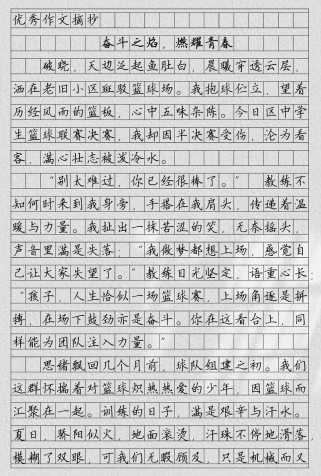 优秀作文摘抄
奋斗之焰，燃耀青春
破晓，天边泛起鱼肚白，晨曦穿透云层，
洒在老旧小区斑驳篮球场。我抱球伫立，望着
历经风雨的篮板，心中五味杂陈。今日区中学
生篮球联赛决赛，我却因半决赛受伤，沦为看
客，满心壮志被泼冷水。
“别太难过，你已经很棒了。”教练不
知何时来到我身旁，手搭在我肩头，传递着温
暖与力量。我扯出一抹苦涩的笑，无奈摇头，
声音里满是失落：“我做梦都想上场，感觉自
己让大家失望了。”教练目光坚定，语重心长：
“孩子，人生恰似一场篮球赛，上场角逐是拼
搏，在场下鼓劲亦是奋斗。你在这看台上，同
样能为团队注入力量。”
思绪飘回几个月前，球队组建之初。我们
这群怀揣着对篮球炽热热爱的少年，因篮球而
汇聚在一起。训练的日子，满是艰辛与汗水。
夏日，骄阳似火，地面滚烫，汗珠不停地滑落，
模糊了双眼，可我们无暇顾及，只是机械而又